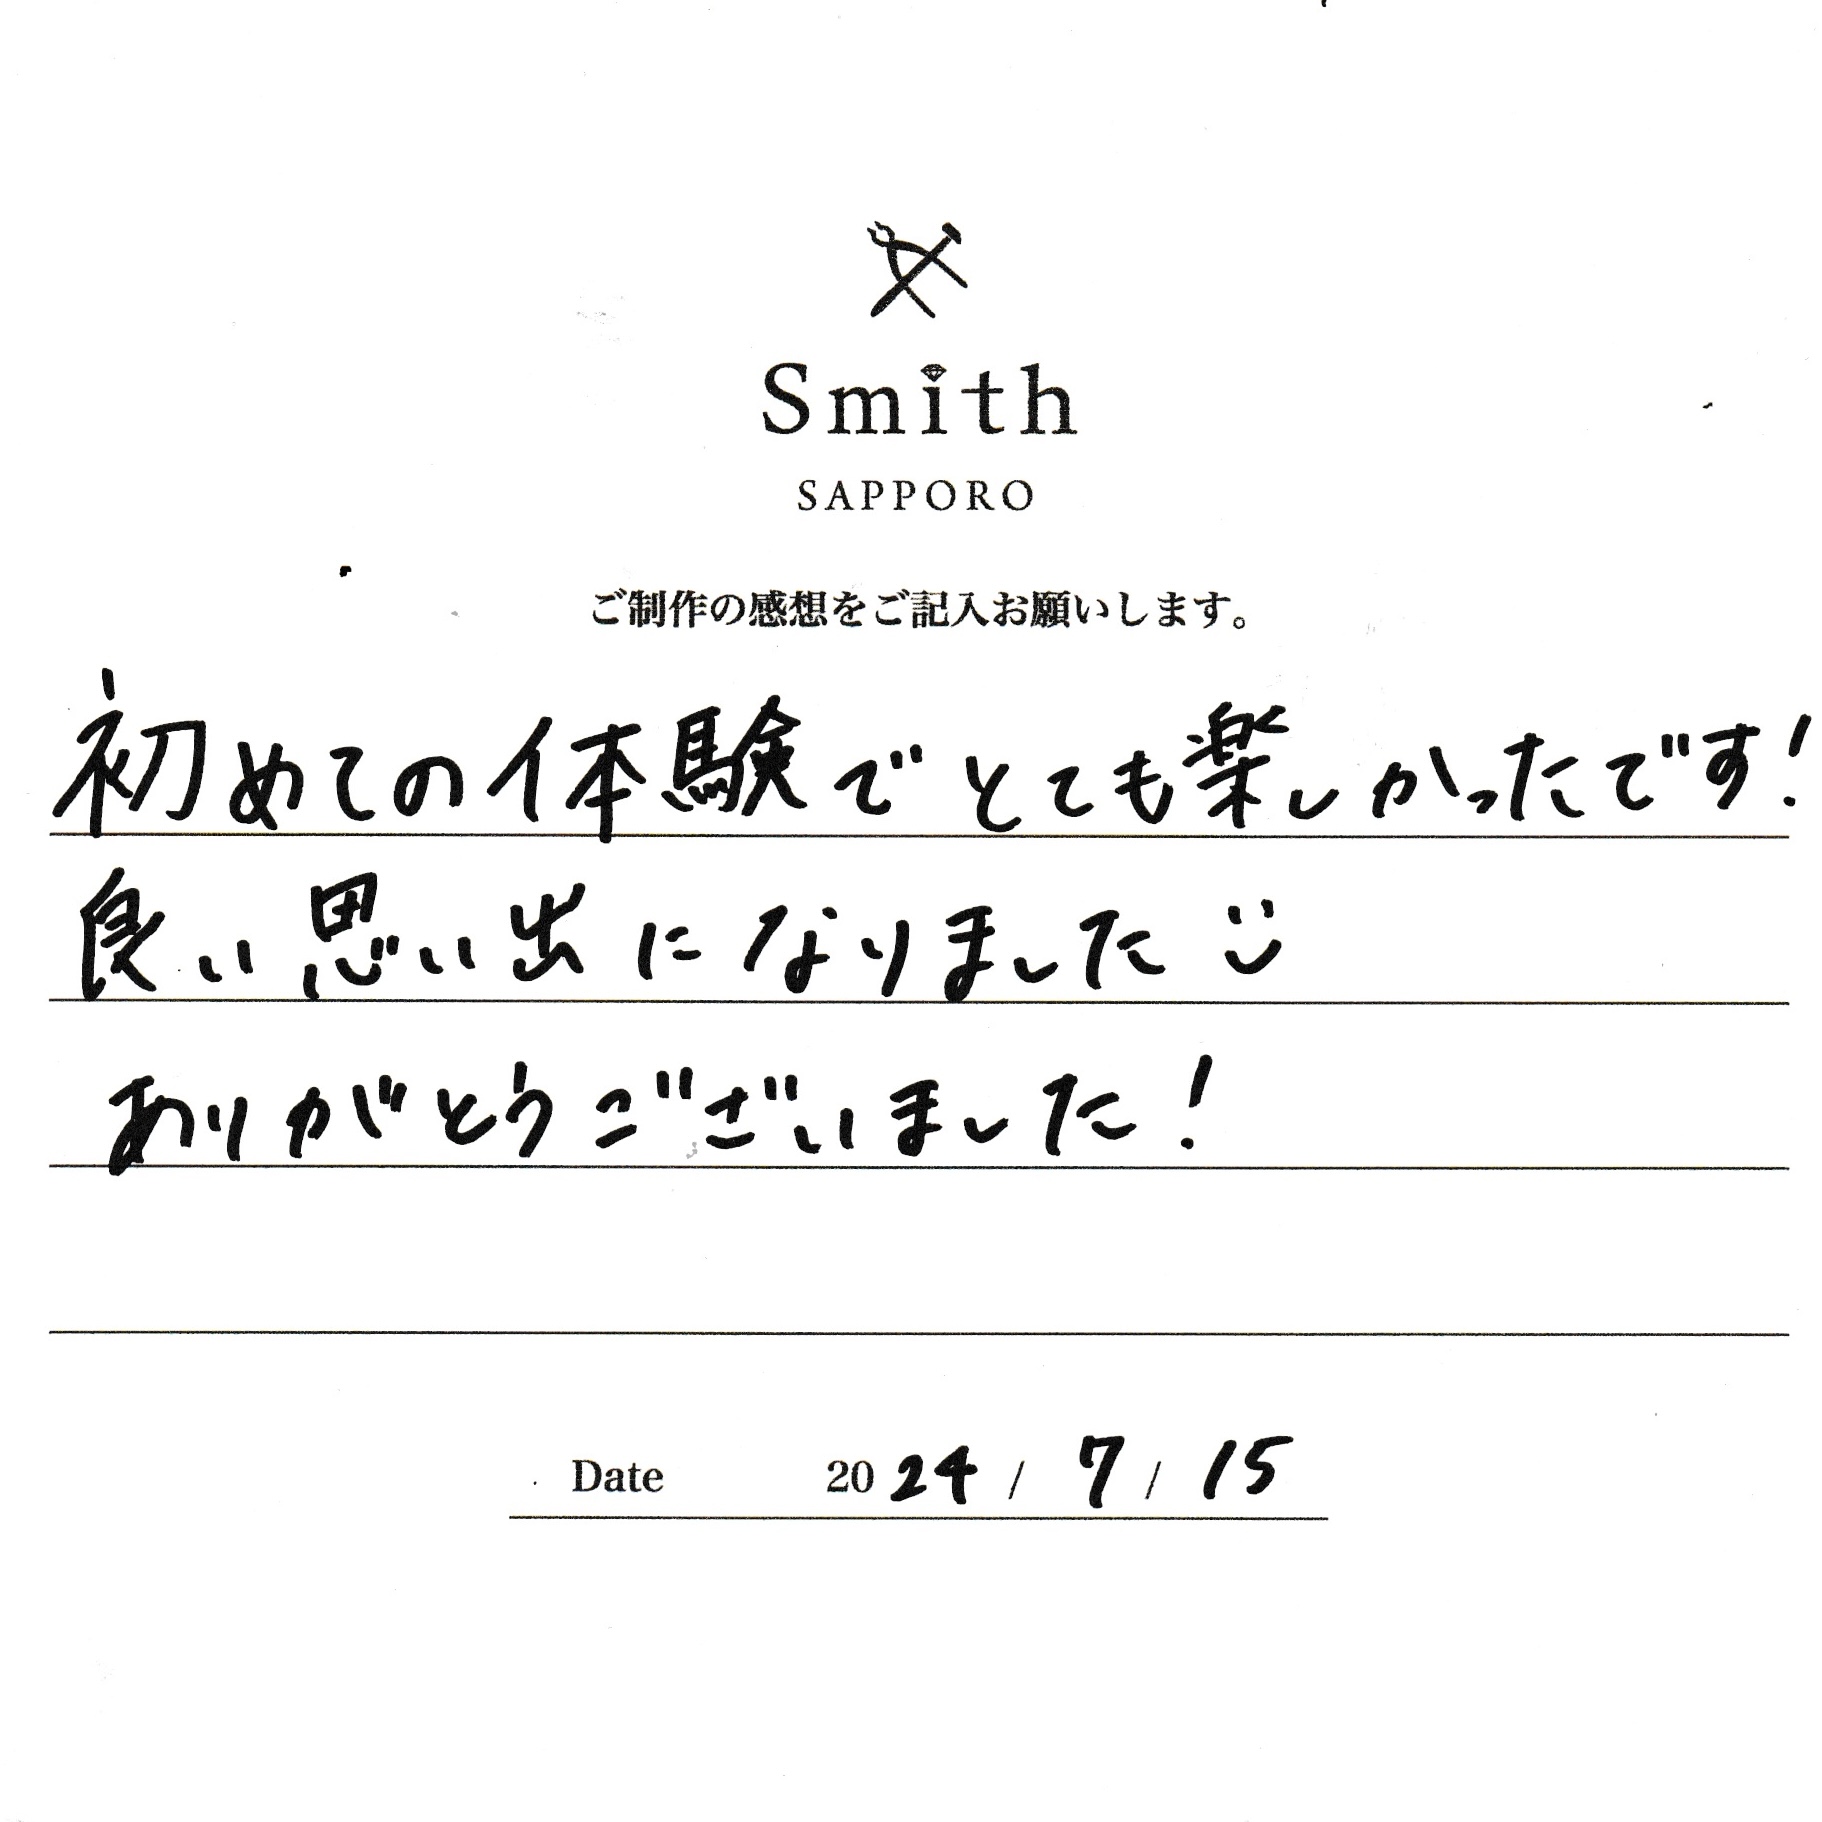 Smith
SAPPORO
ご制作の感想をご記入お願いします。
初めての体験でとても楽しかったです!
良い思い出になりました
ありがとうございました!
Date 2024 / 7 / 15